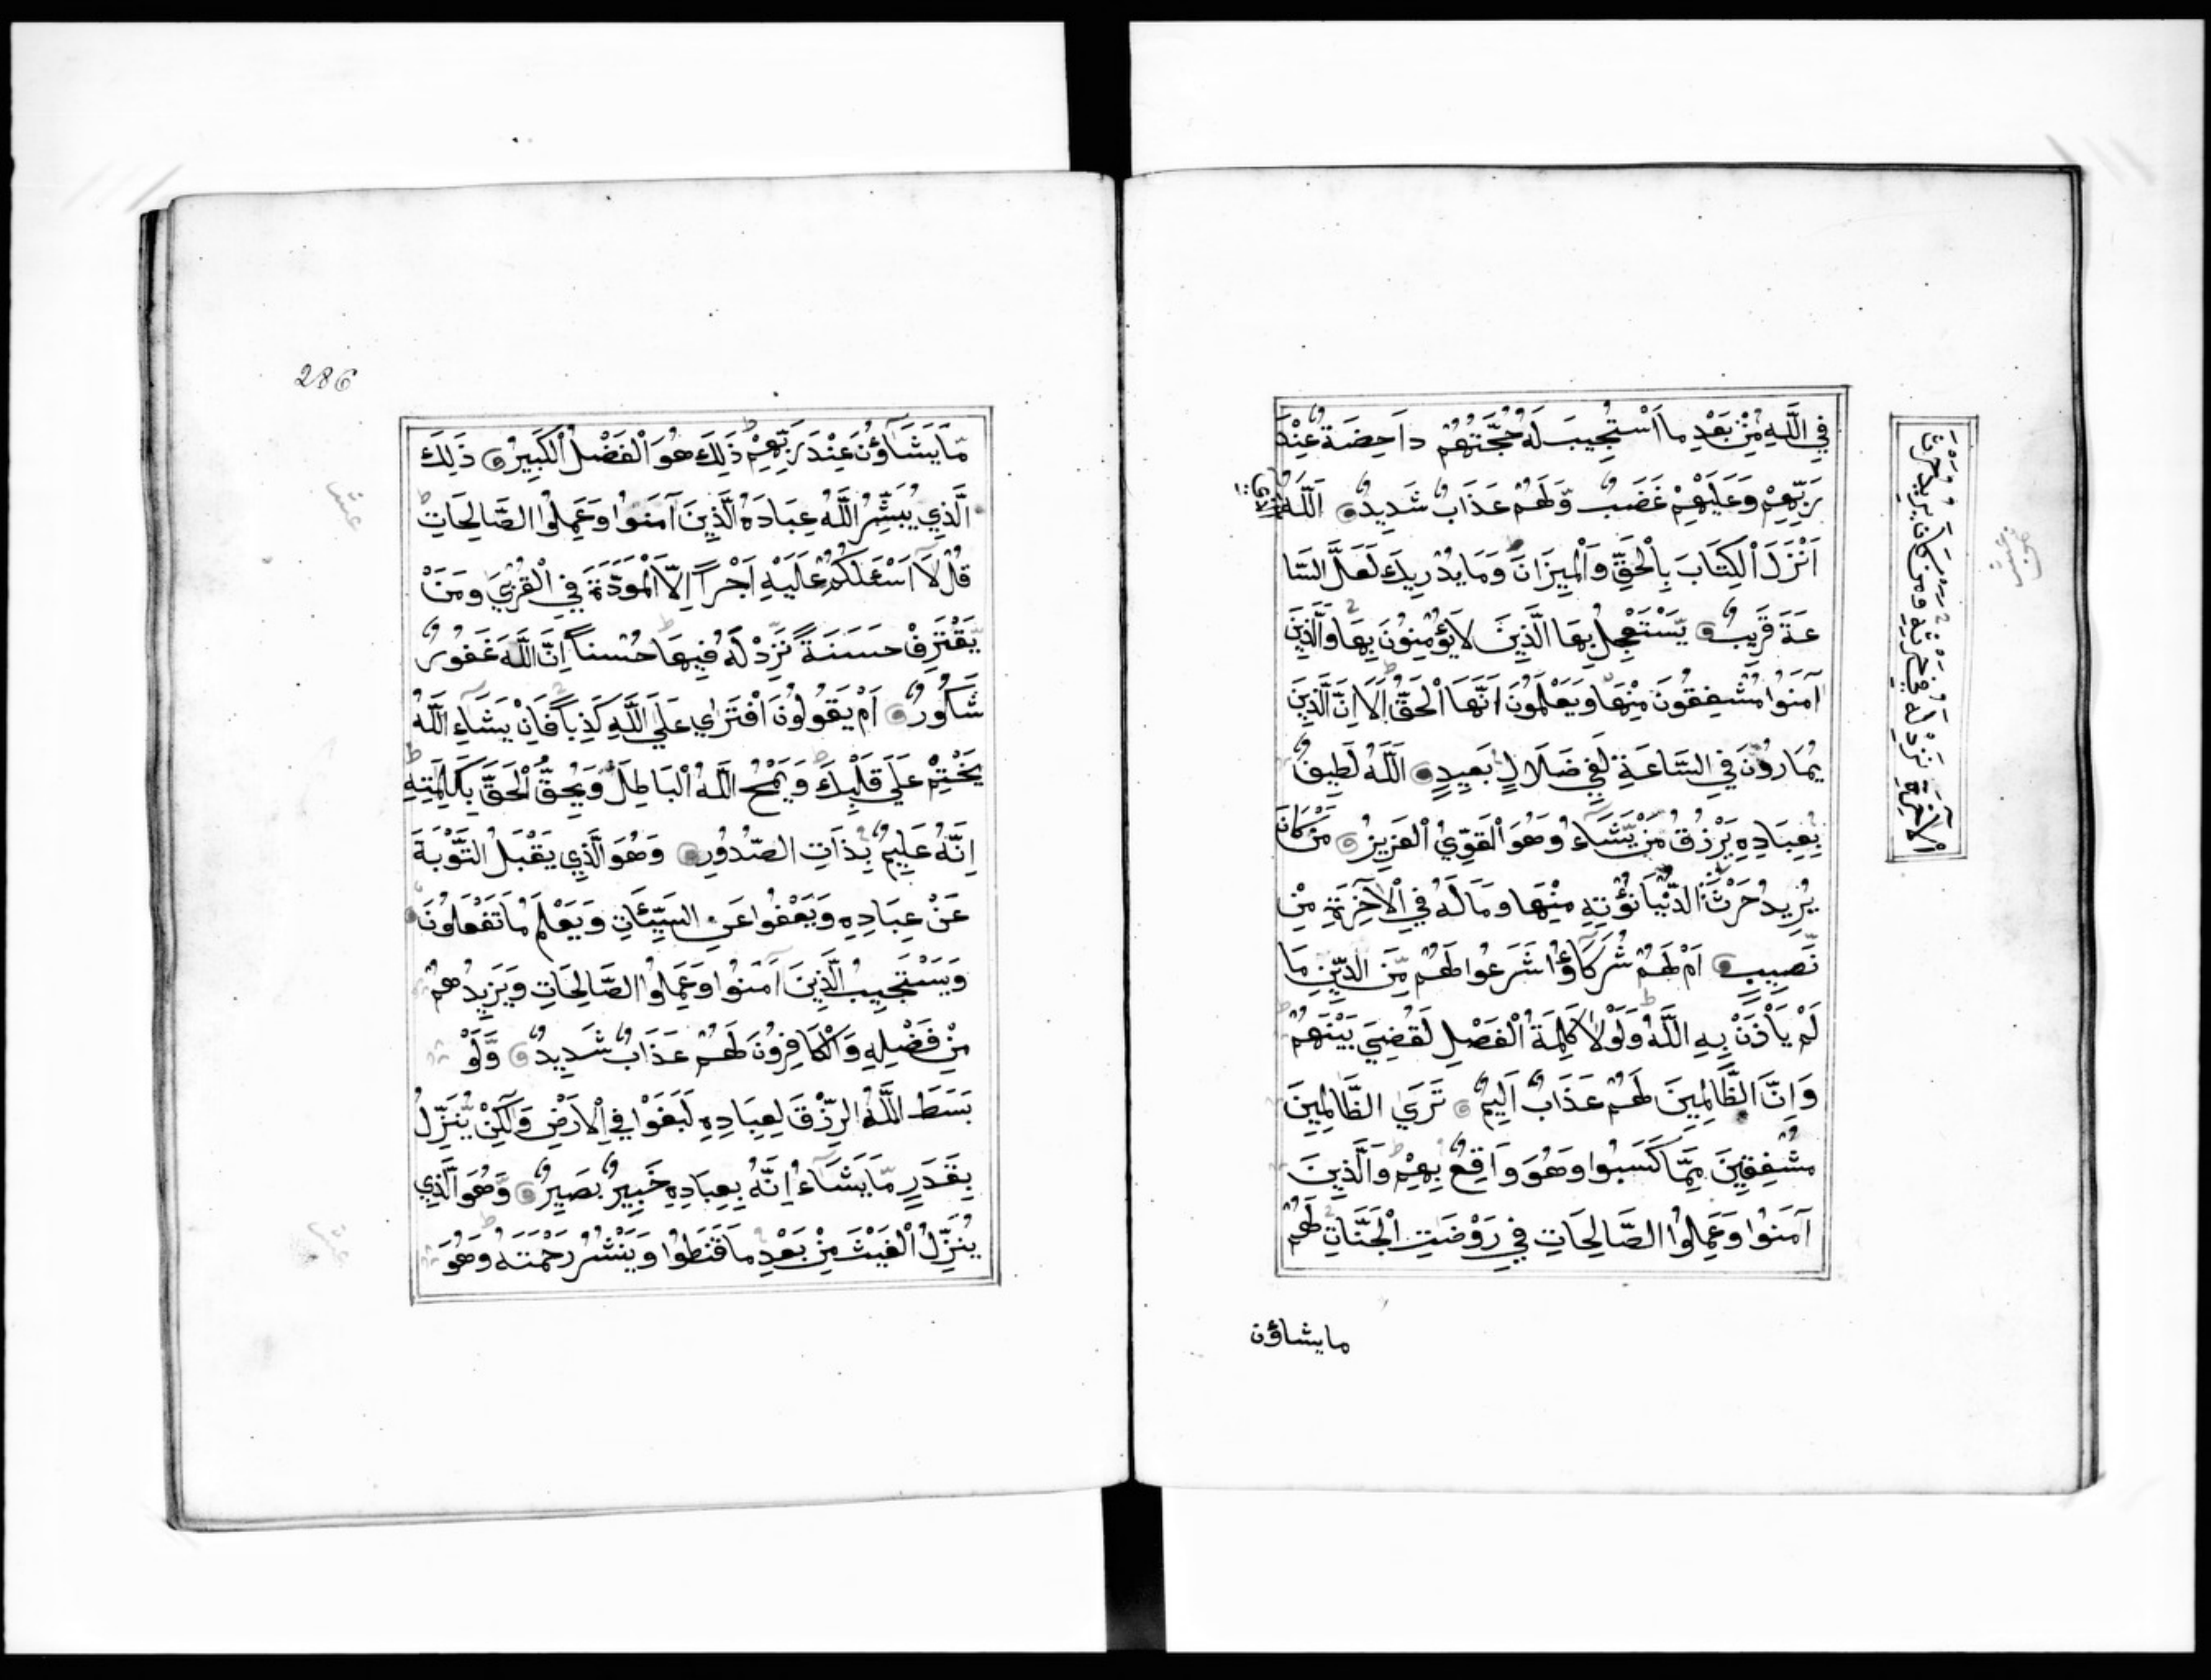 فِي اللَّهِ مِنْ بَعْدِ مَا اسْتُجِيبَ لَهُ حُجَّتُهُمْ دَاحِضَةٌ عِنْدَ
رَبِّهِمْ وَعَلَيْهِمْ غَضَبٌ وَّلَهُمْ عَذَابٌ شَدِيدٌ اَللَّهُ الَّذِي
اَنْزَلَ الْكِتَابَ بِالْحَقِّ وَالْمِيزَانَ وَمَا يُدْرِيكَ لَعَلَّ السَّا
عَةَ قَرِيبٌ يَسْتَعْجِلُ بِهَا الَّذِينَ لَا يُؤْمِنُونَ بِهَا وَالَّذِينَ
آمَنُوا مُشْفِقُونَ مِنْهَا وَيَعْلَمُونَ اَنَّهَا الْحَقُّ اَلَا اِنَّ الَّذِينَ
يُمَارُونَ فِي السَّاعَةِ لَفِي ضَلَالٍ بَعِيدٍ اَللَّهُ لَطِيفٌ
بِعِبَادِهِ يَرْزُقُ مَنْ يَّشَاءُ وَهُوَ الْقَوِيُّ الْعَزِيزُ مَنْ كَانَ
يُرِيدُ حَرْثَ الدُّنْيَا نُؤْتِهِ مِنْهَا وَمَا لَهُ فِي الْآخِرَةِ مِنْ
نَّصِيبٍ اَمْ لَهُمْ شُرَكَاؤُا شَرَعُوا لَهُمْ مِّنَ الدِّينِ مَا
لَمْ يَأْذَنْ بِهِ اللَّهُ وَلَوْلَا كَلِمَةُ الْفَصْلِ لَقُضِيَ بَيْنَهُمْ
وَاِنَّ الظَّالِمِينَ لَهُمْ عَذَابٌ اَلِيمٌ تَرَى الظَّالِمِينَ
مُشْفِقِينَ مِمَّا كَسَبُوا وَهُوَ وَاقِعٌ بِهِمْ وَالَّذِينَ
آمَنُوا وَعَمِلُوا الصَّالِحَاتِ فِي رَوْضَتِ الْجَنَّاتِ لَهُمْ
مايشاؤن
حَرْثَ
الْآخِرَةِ نَزِدْ لَهُ فِي حَرْثِهِ وَمَنْ كَانَ يُرِيدُ حَرْثَ
286
مَّا يَشَاؤُنَ عِنْدَ رَبِّهِمْ ذَلِكَ هُوَ الْفَضْلُ الْكَبِيرُ ذَلِكَ
الَّذِي يُبَشِّرُ اللَّهُ عِبَادَهُ الَّذِينَ آمَنُوا وَعَمِلُوا الصَّالِحَاتِ
قُلْ لَا اَسْئَلُكُمْ عَلَيْهِ اَجْراً اِلَّا الْمَوَدَّةَ فِي الْقُرْبَى وَمَنْ
يَّقْتَرِفْ حَسَنَةً نَّزِدْ لَهُ فِيهَا حُسْناً اِنَّ اللَّهَ غَفُورٌ
شَكُورٌ اَمْ يَقُولُونَ افْتَرَى عَلَى اللَّهِ كَذِباً فَاِنْ يَشَاءِ اللَّهُ
يَخْتِمْ عَلَى قَلْبِكَ وَيَمْحُ اللَّهُ الْبَاطِلَ وَيُحِقُّ الْحَقَّ بِكَلِمَتِهِ
اِنَّهُ عَلِيمٌ بِذَاتِ الصُّدُورِ وَهُوَ الَّذِي يَقْبَلُ التَّوْبَةَ
عَنْ عِبَادِهِ وَيَعْفُوا عَنِ السَّيِّئَاتِ وَيَعْلَمُ مَا تَفْعَلُونَ
وَيَسْتَجِيبُ الَّذِينَ آمَنُوا وَعَمِلُوا الصَّالِحَاتِ وَيَزِيدُهُمْ
مِنْ فَضْلِهِ وَالْكَافِرُونَ لَهُمْ عَذَابٌ شَدِيدٌ وَّلَوْ
بَسَطَ اللَّهُ الرِّزْقَ لِعِبَادِهِ لَبَغَوْا فِي الْاَرْضِ وَلَكِنْ يُّنَزِّلُ
بِقَدَرٍ مَّا يَشَاءُ اِنَّهُ بِعِبَادِهِ خَبِيرٌ بَصِيرٌ وَّهُوَ الَّذِي
يُنَزِّلُ الْغَيْثَ مِنْ بَعْدِ مَا قَنَطُوا وَيَنْشُرُ رَحْمَتَهُ وَهُوَ